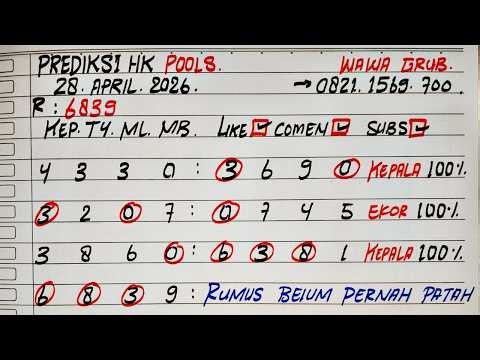 PREDIKSI HK POOLS. WAWA GRUB.
28. APRIL. 2026. →0821.1569.700
R : 6839
KEP. TY. ML. MB. LIKE COMEN SUBS
4 3 3 0 : 3 6 9 0 KEPALA 100%
3 2 0 7 : 0 7 4 5 EKOR 100%
3 8 6 0 : 6 3 8 1 KEPALA 100%
6 8 3 9 : RUMUS BEIUM PERNAH PATAH